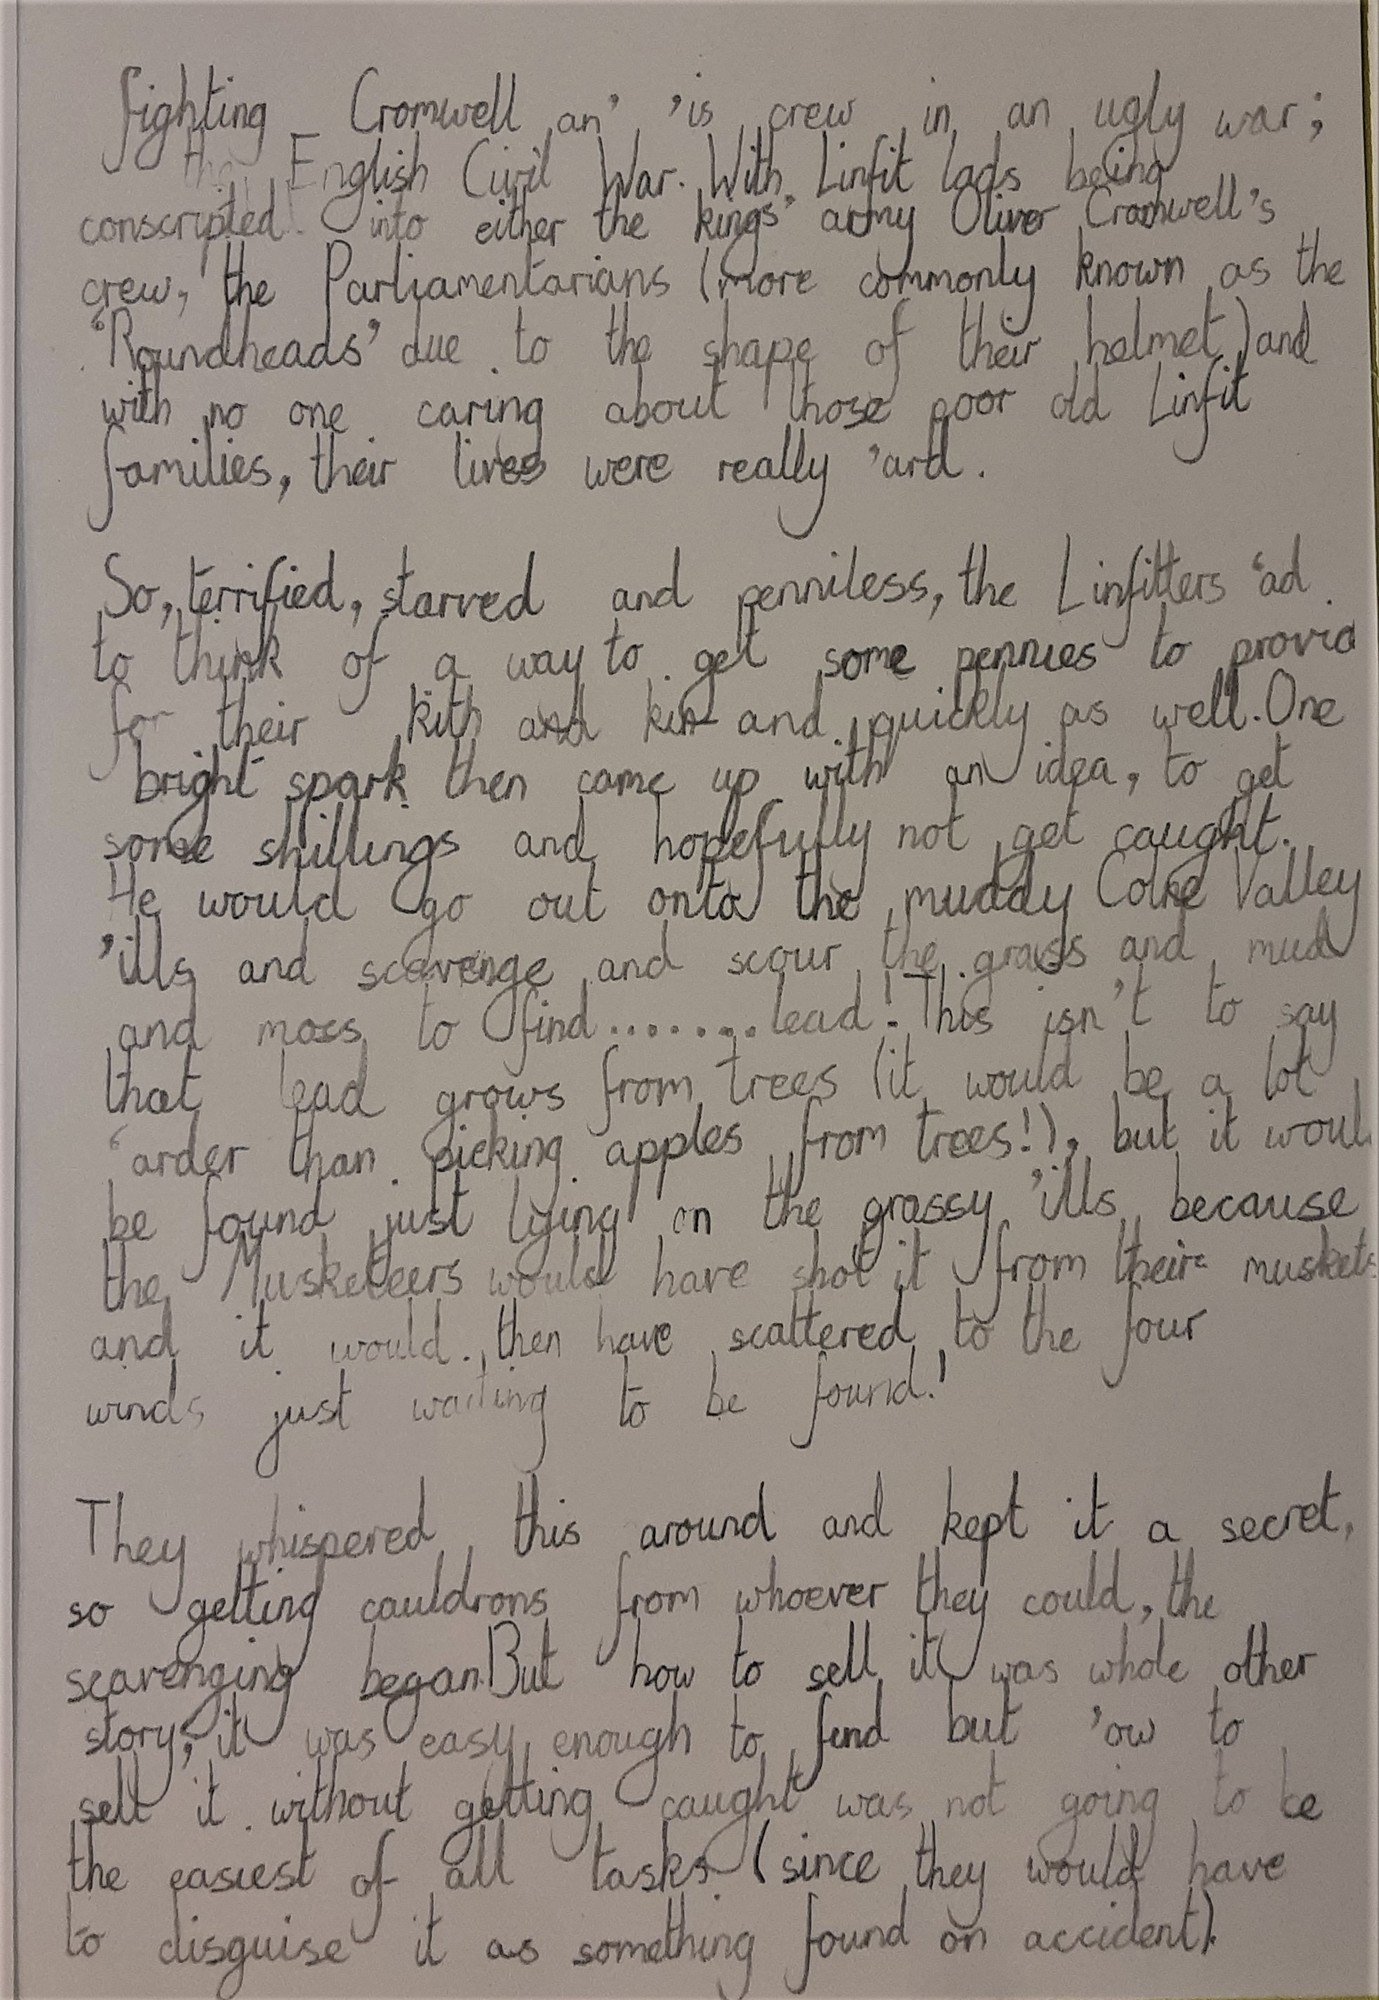 fighting Cromwell an' 'is crew in an ugly war;
the English Civil War. With Linfit lads being
conscripted into either the kings' army Oliver Cromwell's
crew, the Parliamentarians (more commonly known as the
'Roundheads' due to the shape of their helmet) and
with no one caring about those poor old Linfit
families, their lives were really 'ard.
So, terrified, starved and penniless, the Linfitters 'ad
to think of a way to get some pennies to provid
for their kith and kin and quickly as well. One
bright spark then came up with an idea, to get
some shillings and hopefully not get caught.
He would go out onto the muddy Colne Valley
'ills and scavenge and scour the grass and mud
and moss to find........lead! This isn't to say
that lead grows from trees (it would be a lot
'arder than picking apples from trees!), but it woul
be found just lying on the grassy 'ills because
the Musketeers would have shot it from their muskets
and it would then have scattered to the four
winds just waiting to be found!'
They whispered this around and kept it a secret,
so getting cauldrons from whoever they could, the
scavenging began. But how to sell it was whole other
story; it was easy enough to find but 'ow to
sell it without getting caught was not going to be
the easiest of all tasks (since they would have
to disguise it as something found on accident).